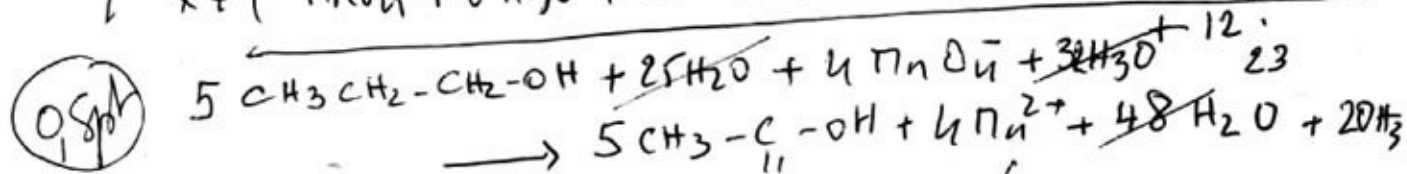 0,5pt 5 CH3CH2-CH2-OH + 25H2O + 4 MnO4- + 32H3O+ 12.
23
→ 5 CH3-C-OH + 4 Mn2+ + 48 H2O + 20H3